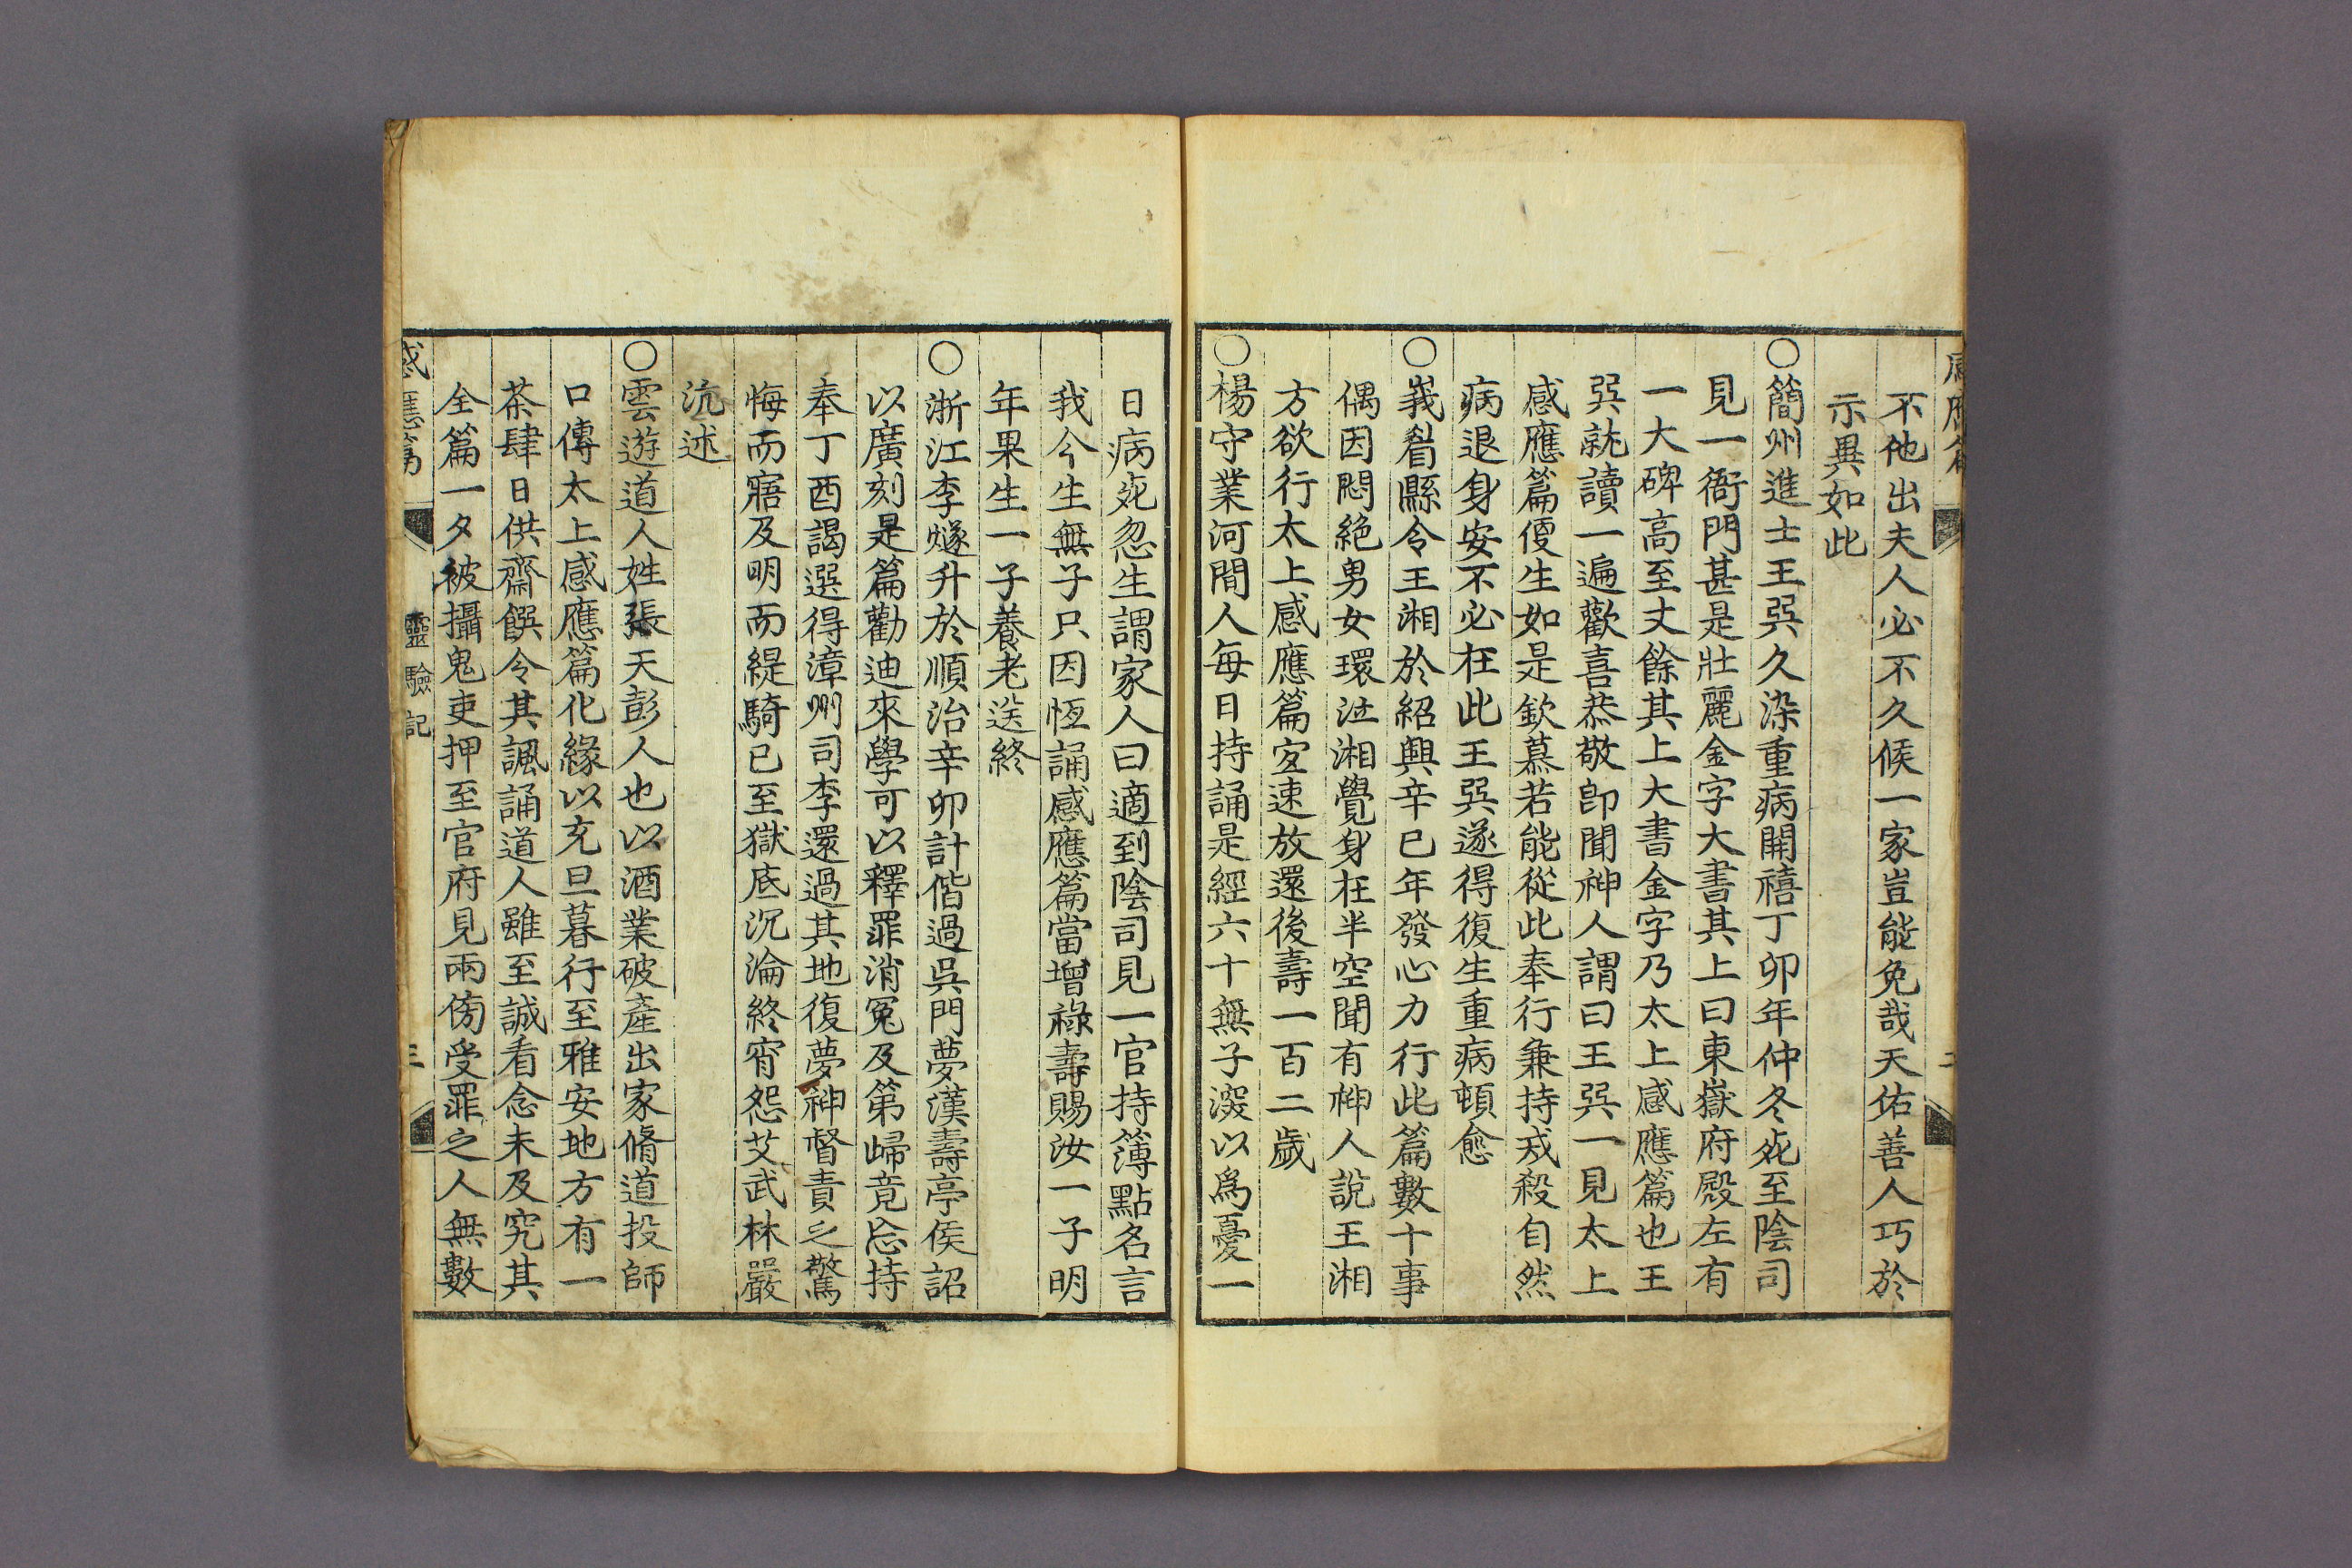 不他出夫人必不久候一家豈能免哉天佑善人巧於
示異如此
○簡州進士王巽久染重病開禧丁卯年仲冬死至陰司
見一衙門甚是壯麗金字大書其上曰東嶽府殿左有
一大碑高至丈餘其上大書金字乃太上感應篇也王
巽就讀一遍歡喜恭敬卽聞神人謂曰王巽一見太上
感應篇便生如是欽慕若能從此奉行兼持戒殺自然
病退身安不必枉此王巽遂得復生重病頓愈
○峩眉縣令王湘於紹興辛巳年發心力行此篇數十事
偶因悶絶男女環泣湘覺身在半空聞有神人說王湘
方欲行太上感應篇宜速放還後壽一百二歲
○楊守業河間人每日持誦是經六十無子深以爲憂一
日病死忽生謂家人曰適到陰司見一官持簿點名言
我今生無子只因恆誦感應篇當增祿壽賜汝一子明
年果生一子養老送終
○浙江李燧升於順治辛卯計偕過吳門夢漢壽亭侯詔
以廣刻是篇勸迪來學可以釋罪消冤及第歸竟忘持
奉丁酉謁選得漳州司李還過其地復夢神督責之驚
悔而寤及明而緹騎已至獄底沉淪終宵怨艾武林嚴
沆述
○雲遊道人姓張天彭人也以酒業破產出家脩道投師
口傳太上感應篇化緣以充旦暮行至雅安地方有一
茶肆日供齋饌令其諷誦道人雖至誠看念未及究其
全篇一夕被攝鬼吏押至官府見兩傍受罪之人無數
感應篇 靈驗記 三